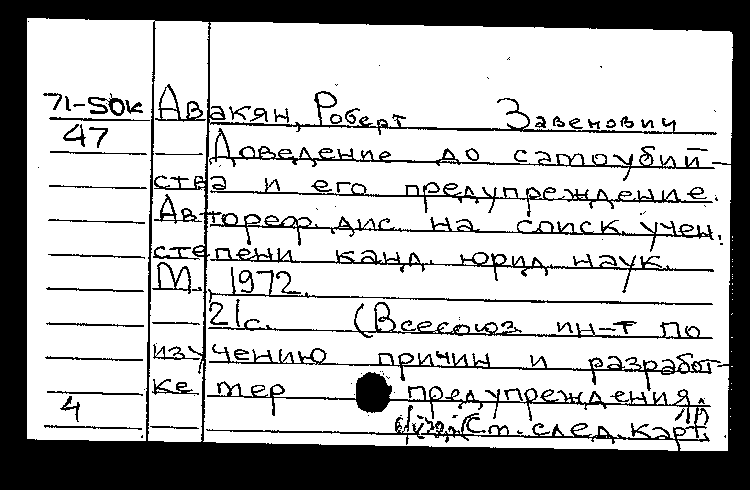 71-50к Авакян, Роберт Завенович
47 Доведение до самоубий-
ства и его предупреждение.
Автореф. дис. на соиск. учен.
степени канд. юрид. наук.
М. 1972.
21с. (Всесоюз ин-т по
изучению причин и разработ-
ке мер предупреждения.
4 (См. след. карт.